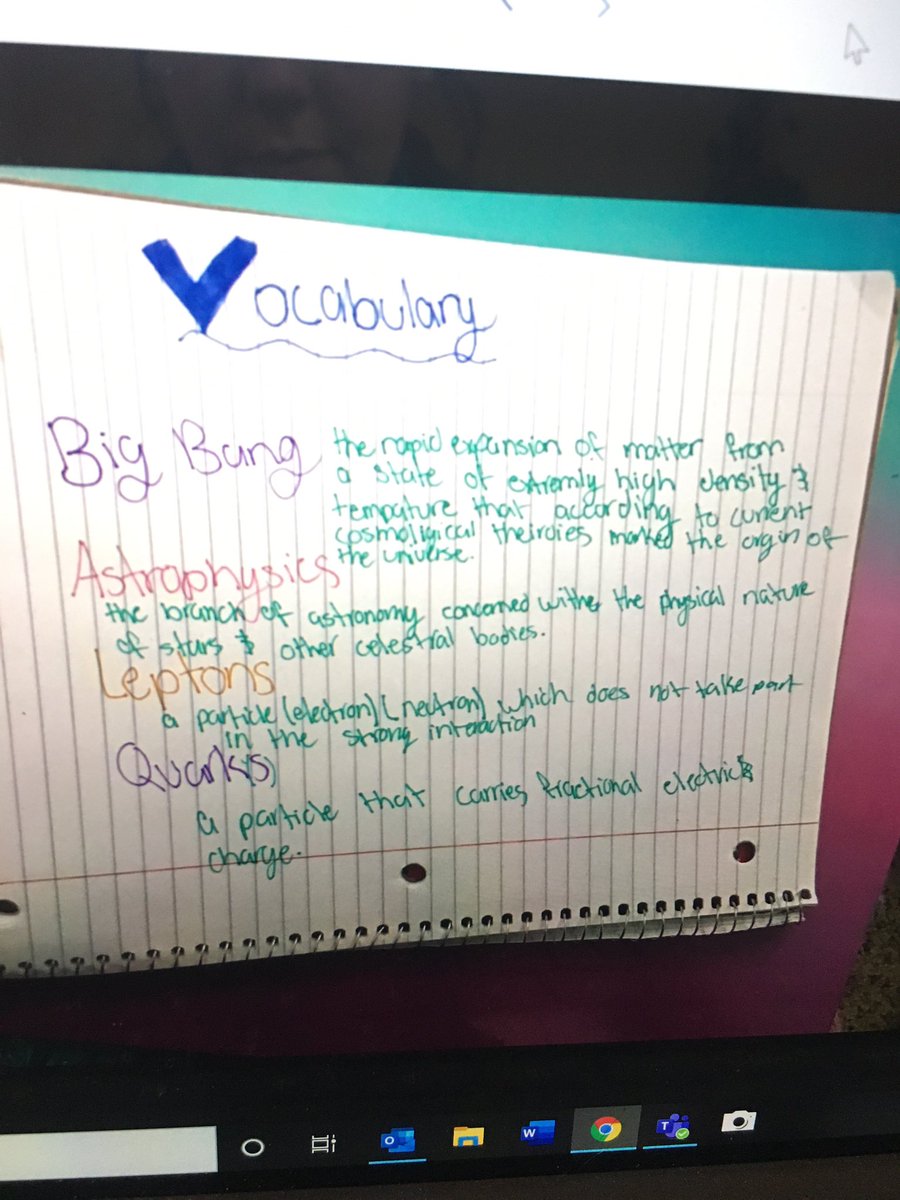 Vocabulary
Big Bang
the rapid expansion of matter from
a state of extremly high density &
tempature that according to current
cosmoligical theirdies marked the orgin of
the universe.
Astrophysics
the branch of astronomy concerned withe the physical nature
of stars & other celestral bodies.
Leptons
a particle (electron) (neutron) which does not take part
in the strong interaction
Quark(s)
a particle that carries fractional electric
charge.